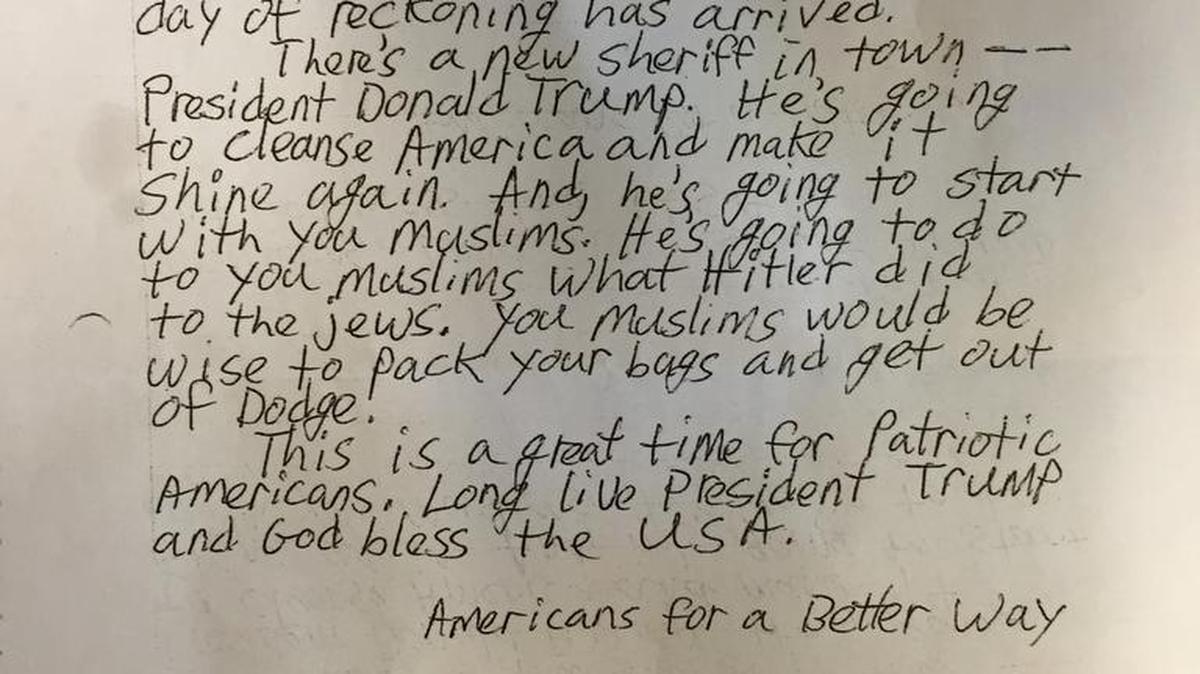 day of reckoning has arrived.
There's a new sheriff in town --
President Donald Trump. He's going
to cleanse America and make it
shine again. And, he's going to start
with you muslims. He's going to do
to you muslims what Hitler did
to the jews. You muslims would be
wise to pack your bags and get out
of Dodge!
This is a great time for Patriotic
Americans. Long live President Trump
and God bless the USA.
Americans for a Better Way